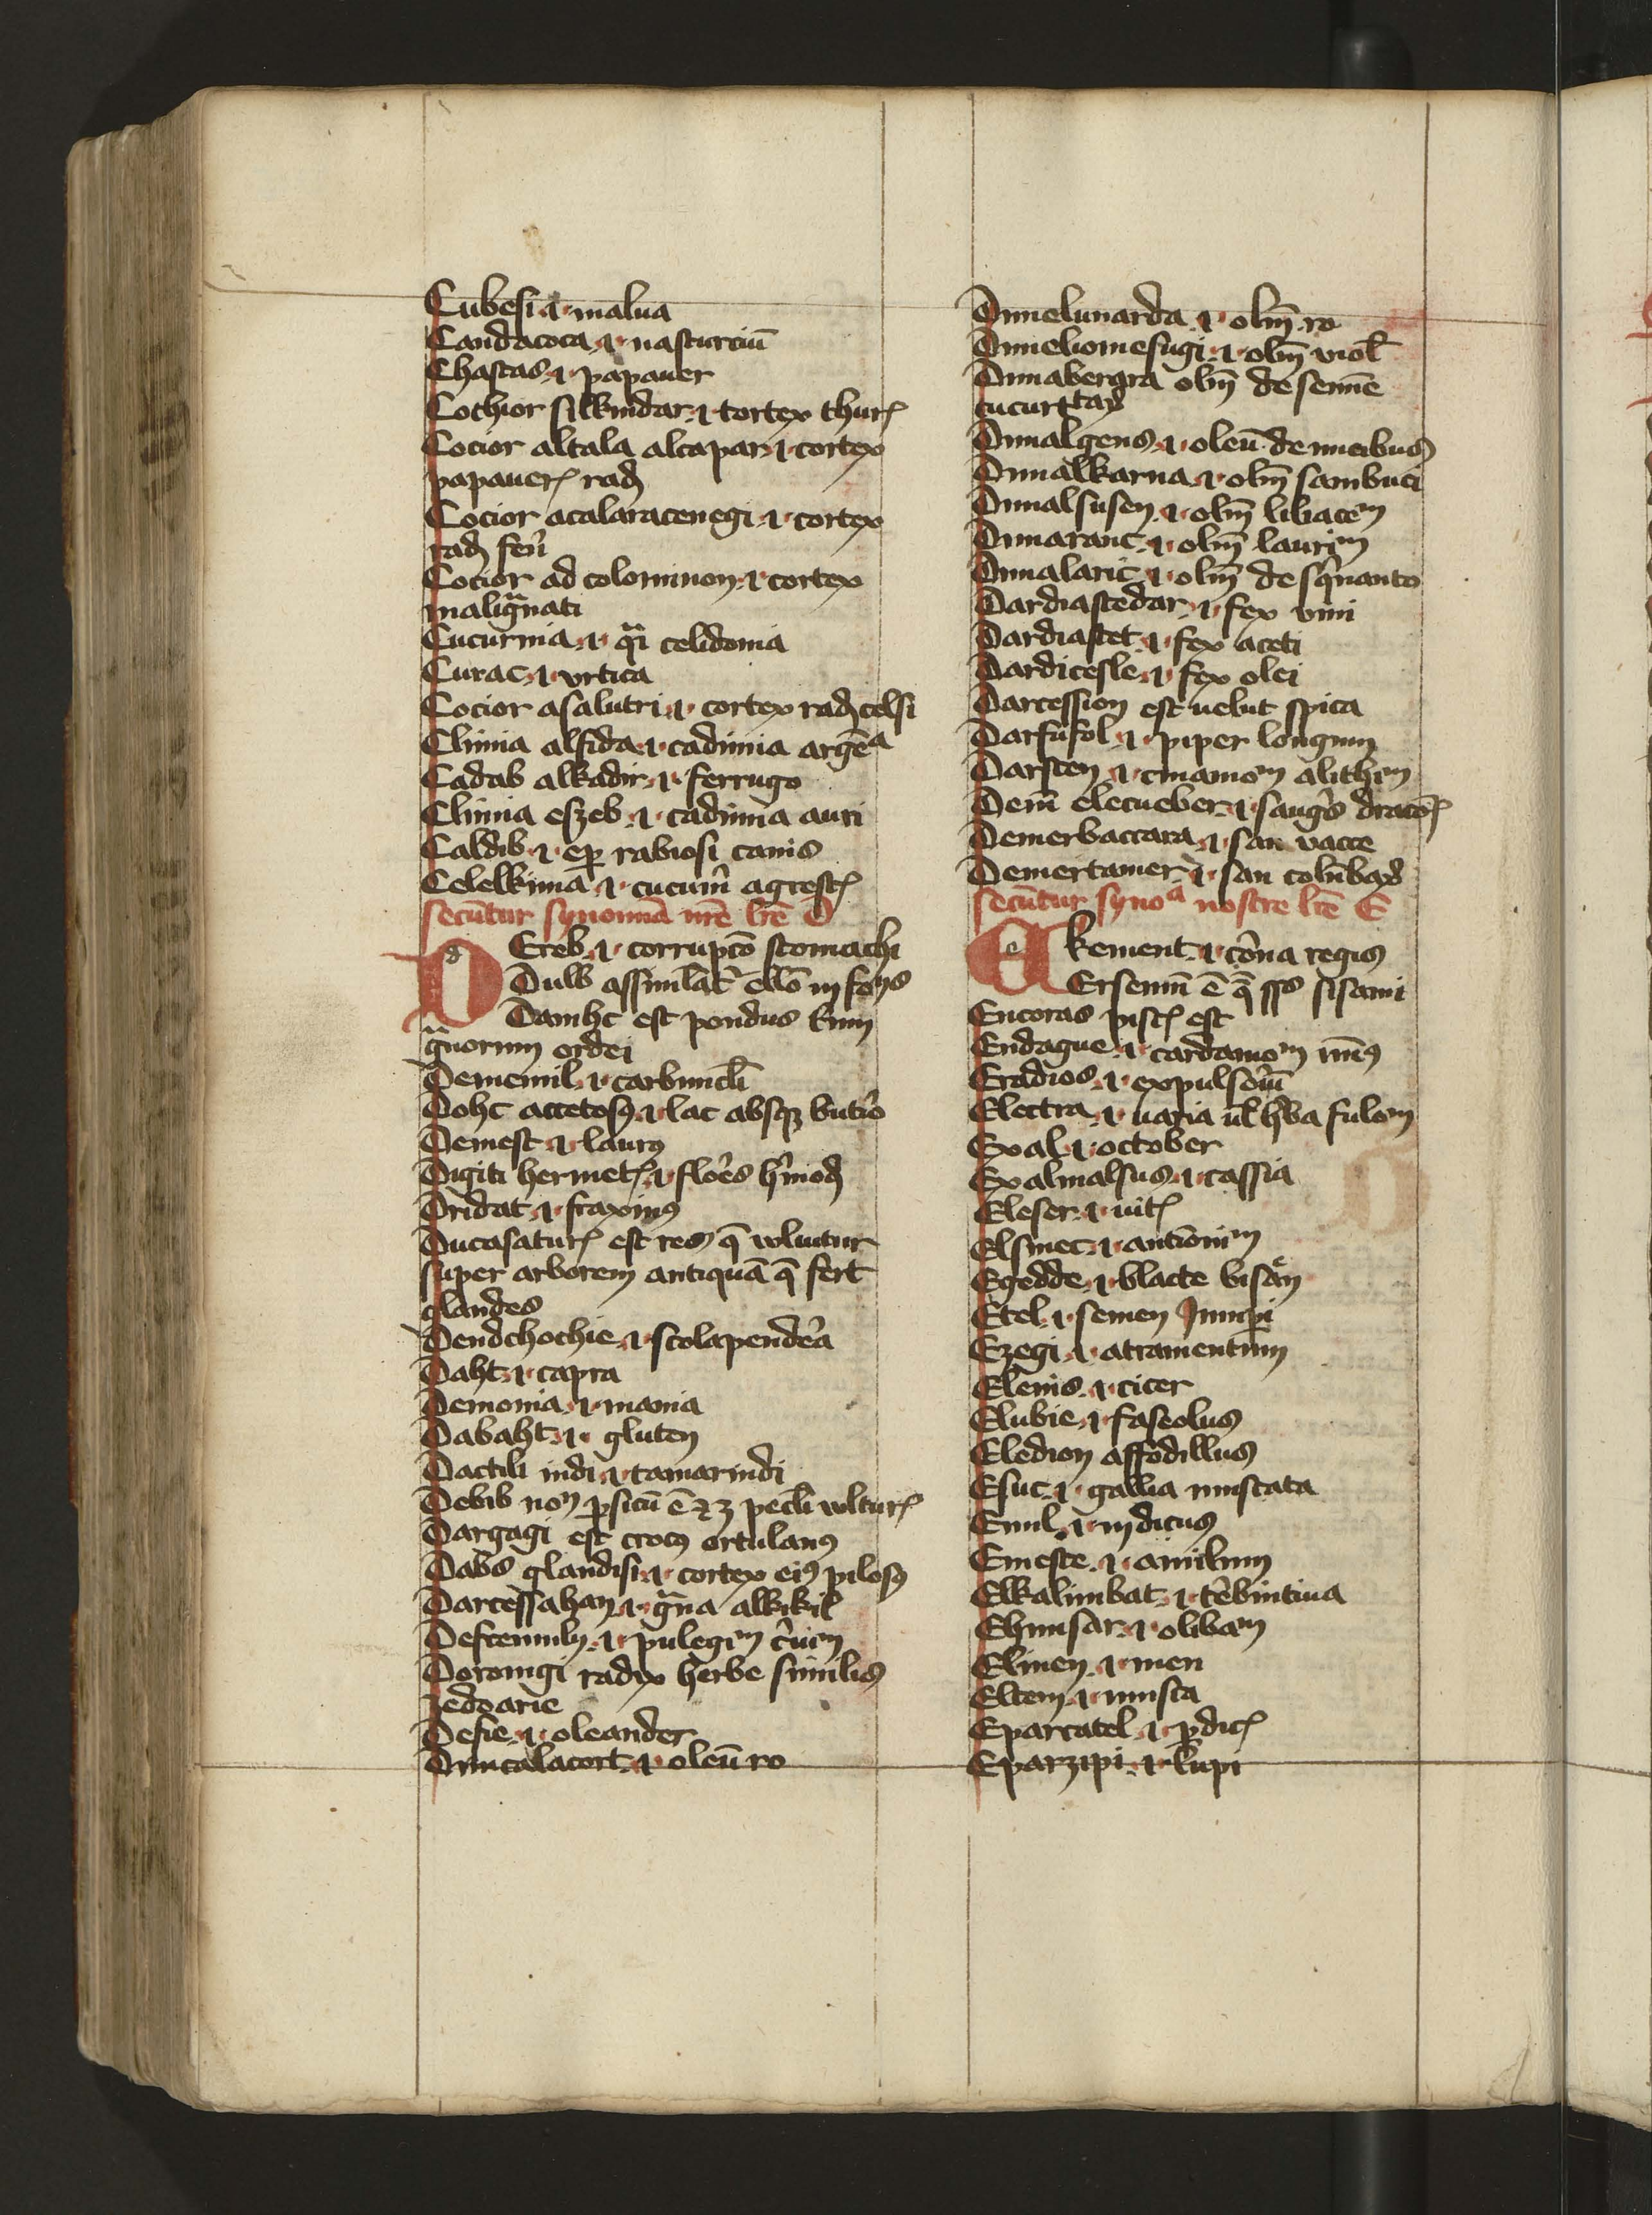 Cubesi .i. malua
Candacoca .i. nasturciū
Chastas .i. papauer
Cochior silkindar .i. cortex thurꝭ
Cocior altala alcapar .i. cortex
papauerꝭ rad
Cocior acalaracenegi .i. cortex
rad feñ
Cocior ad colominon .i. cortex
malignati
Cucurma .i. celidonia
Curac .i. vrtica
Cocior asalutri .i. cortex rad celsi
Climia alfida .i. cadimia argēᵃ
Cadab alkadir .i. ferrugo
Climia eszeb .i. cadimia auri
Caldib .i. rabiosi canis
Celelkima .i. cucum̄ agrestꝭ
secūtur synonima nr̄e lr̄e D
DEreb .i. corrupcō stomachi
Dulb
Damhc est pondus
gᵃnorum ordei
Dememil .i. carbuncl̄i
Dohc accetosꝰ .i. lac absqꝫ butiro
Demest .i. laurꝰ
Digiti hermetꝭ .i. flores hermod
Dridat .i. fraxinꝰ
Ducasaturꝭ est res q̄ voluitur
super arborem antiquā q̄ fert
glandes
Dendchochie .i. scolapendera
Daht .i. capra
Demonia .i. mania
Dabaht .i. gluten
Dactili indi .i. tamarindi
Debib
Dargagi est crocꝰ ortulanꝰ
Dabs glandisi .i. cortex eiꝰ pilosꝰ
Darcessahan .i. gᵃna alkikil
Deftemuly .i. pulegiᵐ
Doronigi radix herbe similis
zedoarie
Defie .i. oleander
Dimcalacort .i. oleū ro
Dimelunarda .i. olm̄ ro
Dimeliomefugi .i. olm̄ viol
Dimabergra olm̄ de semīe
cucurbitaꝝ
Dimalgens .i. oleū de nucibus
Dimalkarna .i. olm̄ sambuci
Dimalsusen .i. olm̄ liliaceᵐ
Dimaranc .i. olm̄ lauriᵐ
Dimalaric .i. olm̄ de squinanto
Dardiastedar .i. fex vini
Dardiastet .i. fex aceti
Dardicesle .i. fex olei
Darcession est uelut spica
Darfufol .i. piper longum
Darsten .i. cinamoᵐ alithiᵐ
Dem̄ elecueber .i. sangis dracōꝭ
Demerbaccara .i. san vacce
Demertamer .i. san colūbaꝝ
secūtur synoᵃ nostre lr̄e E
EKement .i. corona regis
Ersemm̄ ē q̄ sisami
Encoras piscꝭ est
Endague .i. cardamoᵐ
Eradios .i. expulsoriū
Electra .i. uaria ul̄ herba fuloᵐ
Exal .i. october
Exalmalsus .i. cassia
Eleser .i. uitꝭ
Elsmec .i. antimoniᵐ
Egedde .i. blacte bisan
Etel .i. semen Juncpi
Ezegi .i. atramentum
Elenis .i. cicer
Elubie .i. faseolus
Eledion affodillus
Esuc .i. gallia muscata
Emil .i. indicus
Emeste .i. amilum
Elkalimbat .i. terbintina
Ehmsar .i. olibaᵐ
Elmen .i. men
Eltem .i. musca
Eparratel .i. perdicꝭ
Eparzipi .i. lupi